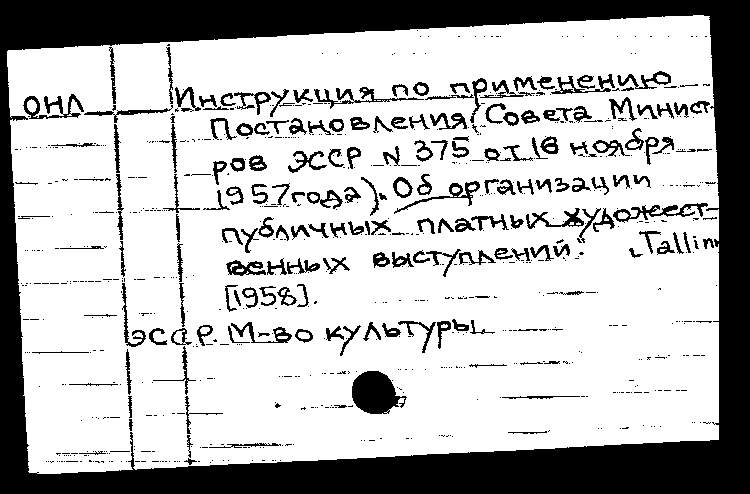 ОНЛ Инструкция по применению
Постановления (Совета Минист-
ров ЭССР N 375 от 16 ноября
1957 года). „Об организации
публичных платных художест-
венных выступлений." Tallinn
[1958].
ЭССР. М-во культуры.